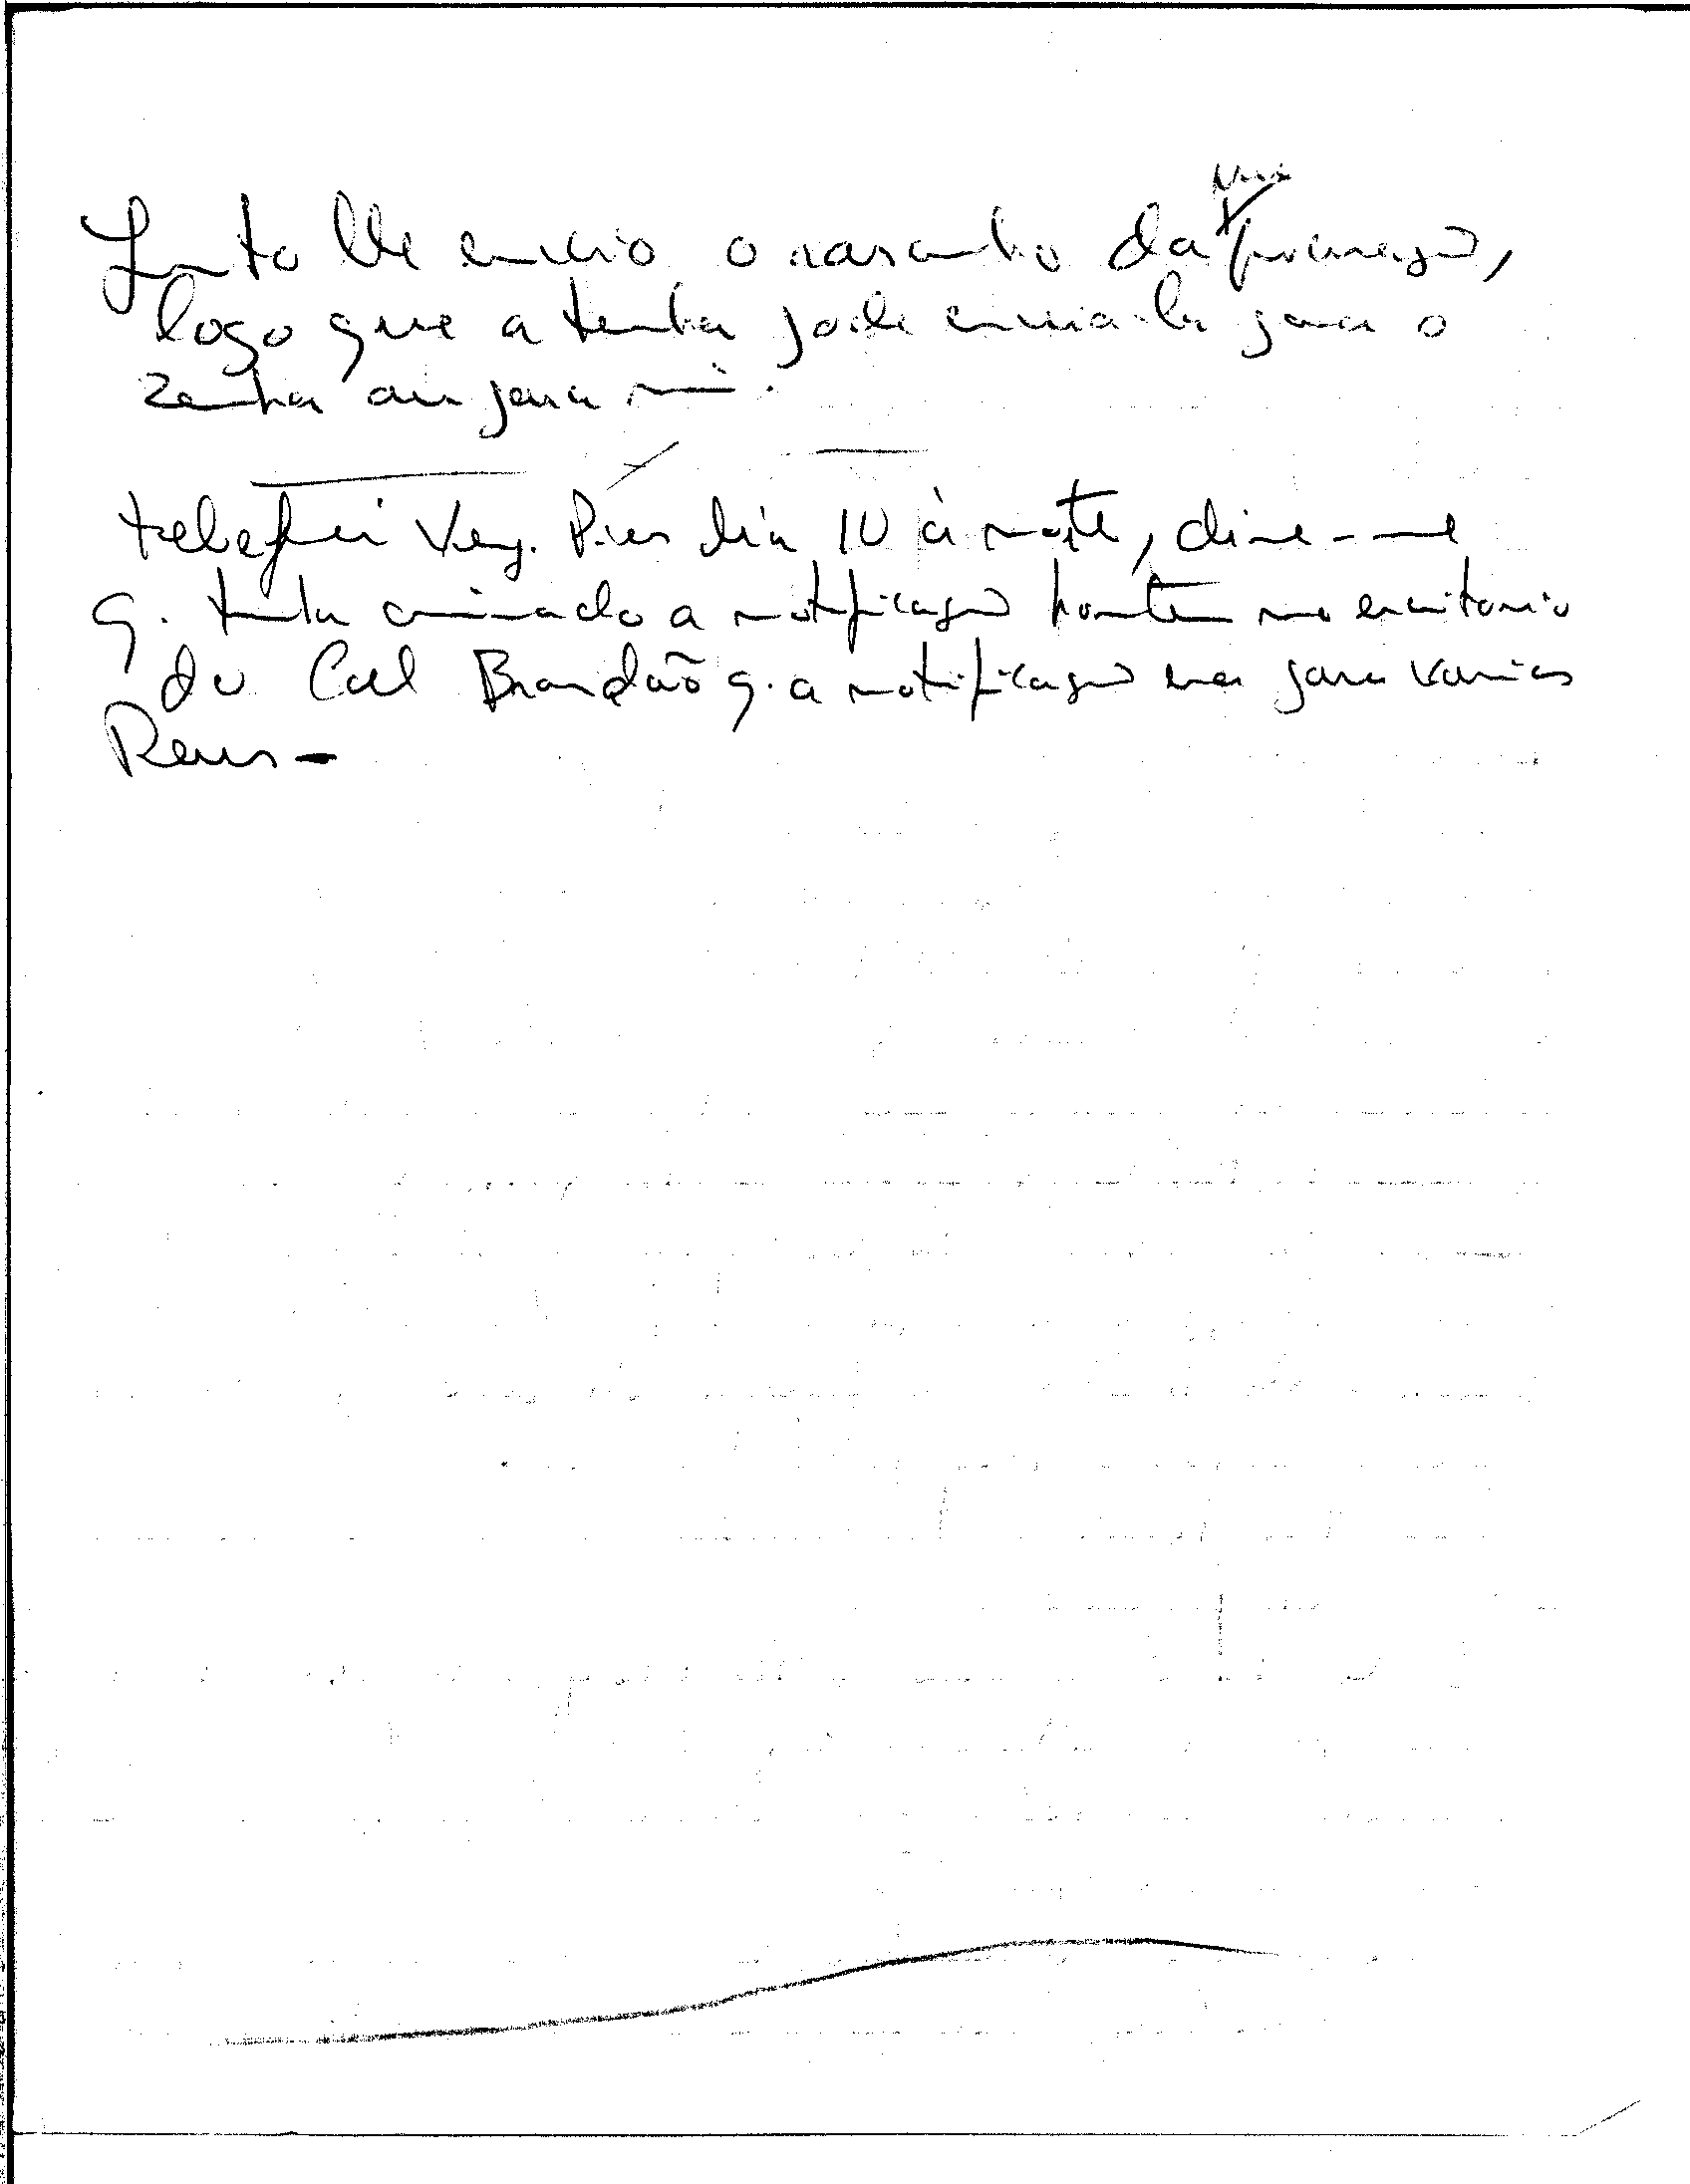 Junto lhe envio o rascunho da procuração,
logo que a tenha pode envia-la para o
Zenha ou para mim.
telefonei Veq. Pires dia 10 à noite, disse-me
q. tinha assinado a notificação hontem no escritorio
do Cel Brandão q. a notificação era para varios
Reus -